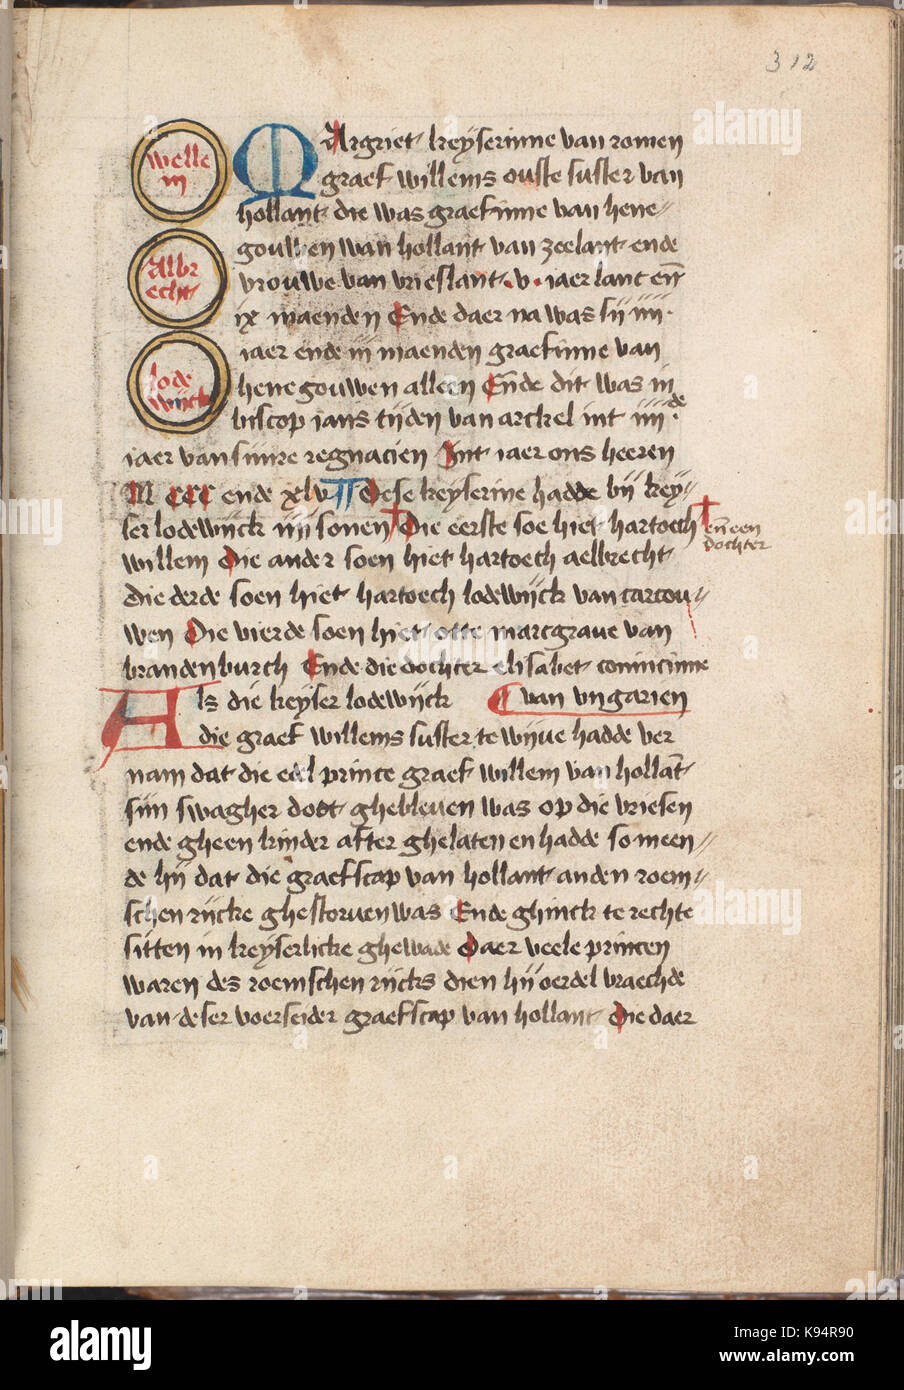 312
welle
m
Albr
echt
lode
wijck
MArgriet keyserinne van romen
graef willems ouste suster van
hollant die was graefinne van hene-
gouwen wan hollant van zeelant ende
vrouwe van vrieslant .v. iaer lanc en̄
ix maenden Ende daer na was sij iiij.
iaer ende iij maenden graefinne van
henegouwen alleen En̄de dit was in
biscop ians tijden van arckel int iiij de.
iaer van sinre regnacien Int iaer ons heeren
M CCC ende xlvii Dese keyserine hadde bij key-
ser lodewijck iiij sonen Die eerste soe hiet hartoech
en̄ een
dochter
willem Die ander soen hiet hartoech aelbrecht
die derde soen hiet hartoech lodewijck van
wen Die vierde soen hiet otte marcgraue van
brandenburch Ende die dochter elisabet conincinne
van vngarien
Als die keyser lodewijck
die graef willems suster te wijue hadde ver
nam dat die edel prince graef willem van hollāt
sijn swagher doot ghebleuen was op die vriesen
ende gheen kinder after ghelaten en hadde so meen
de hij dat die graefscap van hollant an den roem
schen rijcke ghestoruen was Ende ghinck te rechte
sitten in keyserlicke ghewade Daer veele princen
waren des roemschen rijcks dien hij oerdel vraechde
van deser voerseider graefscap van hollant Die daer
alamy
alamy stock photo
K94R90
www.alamy.com